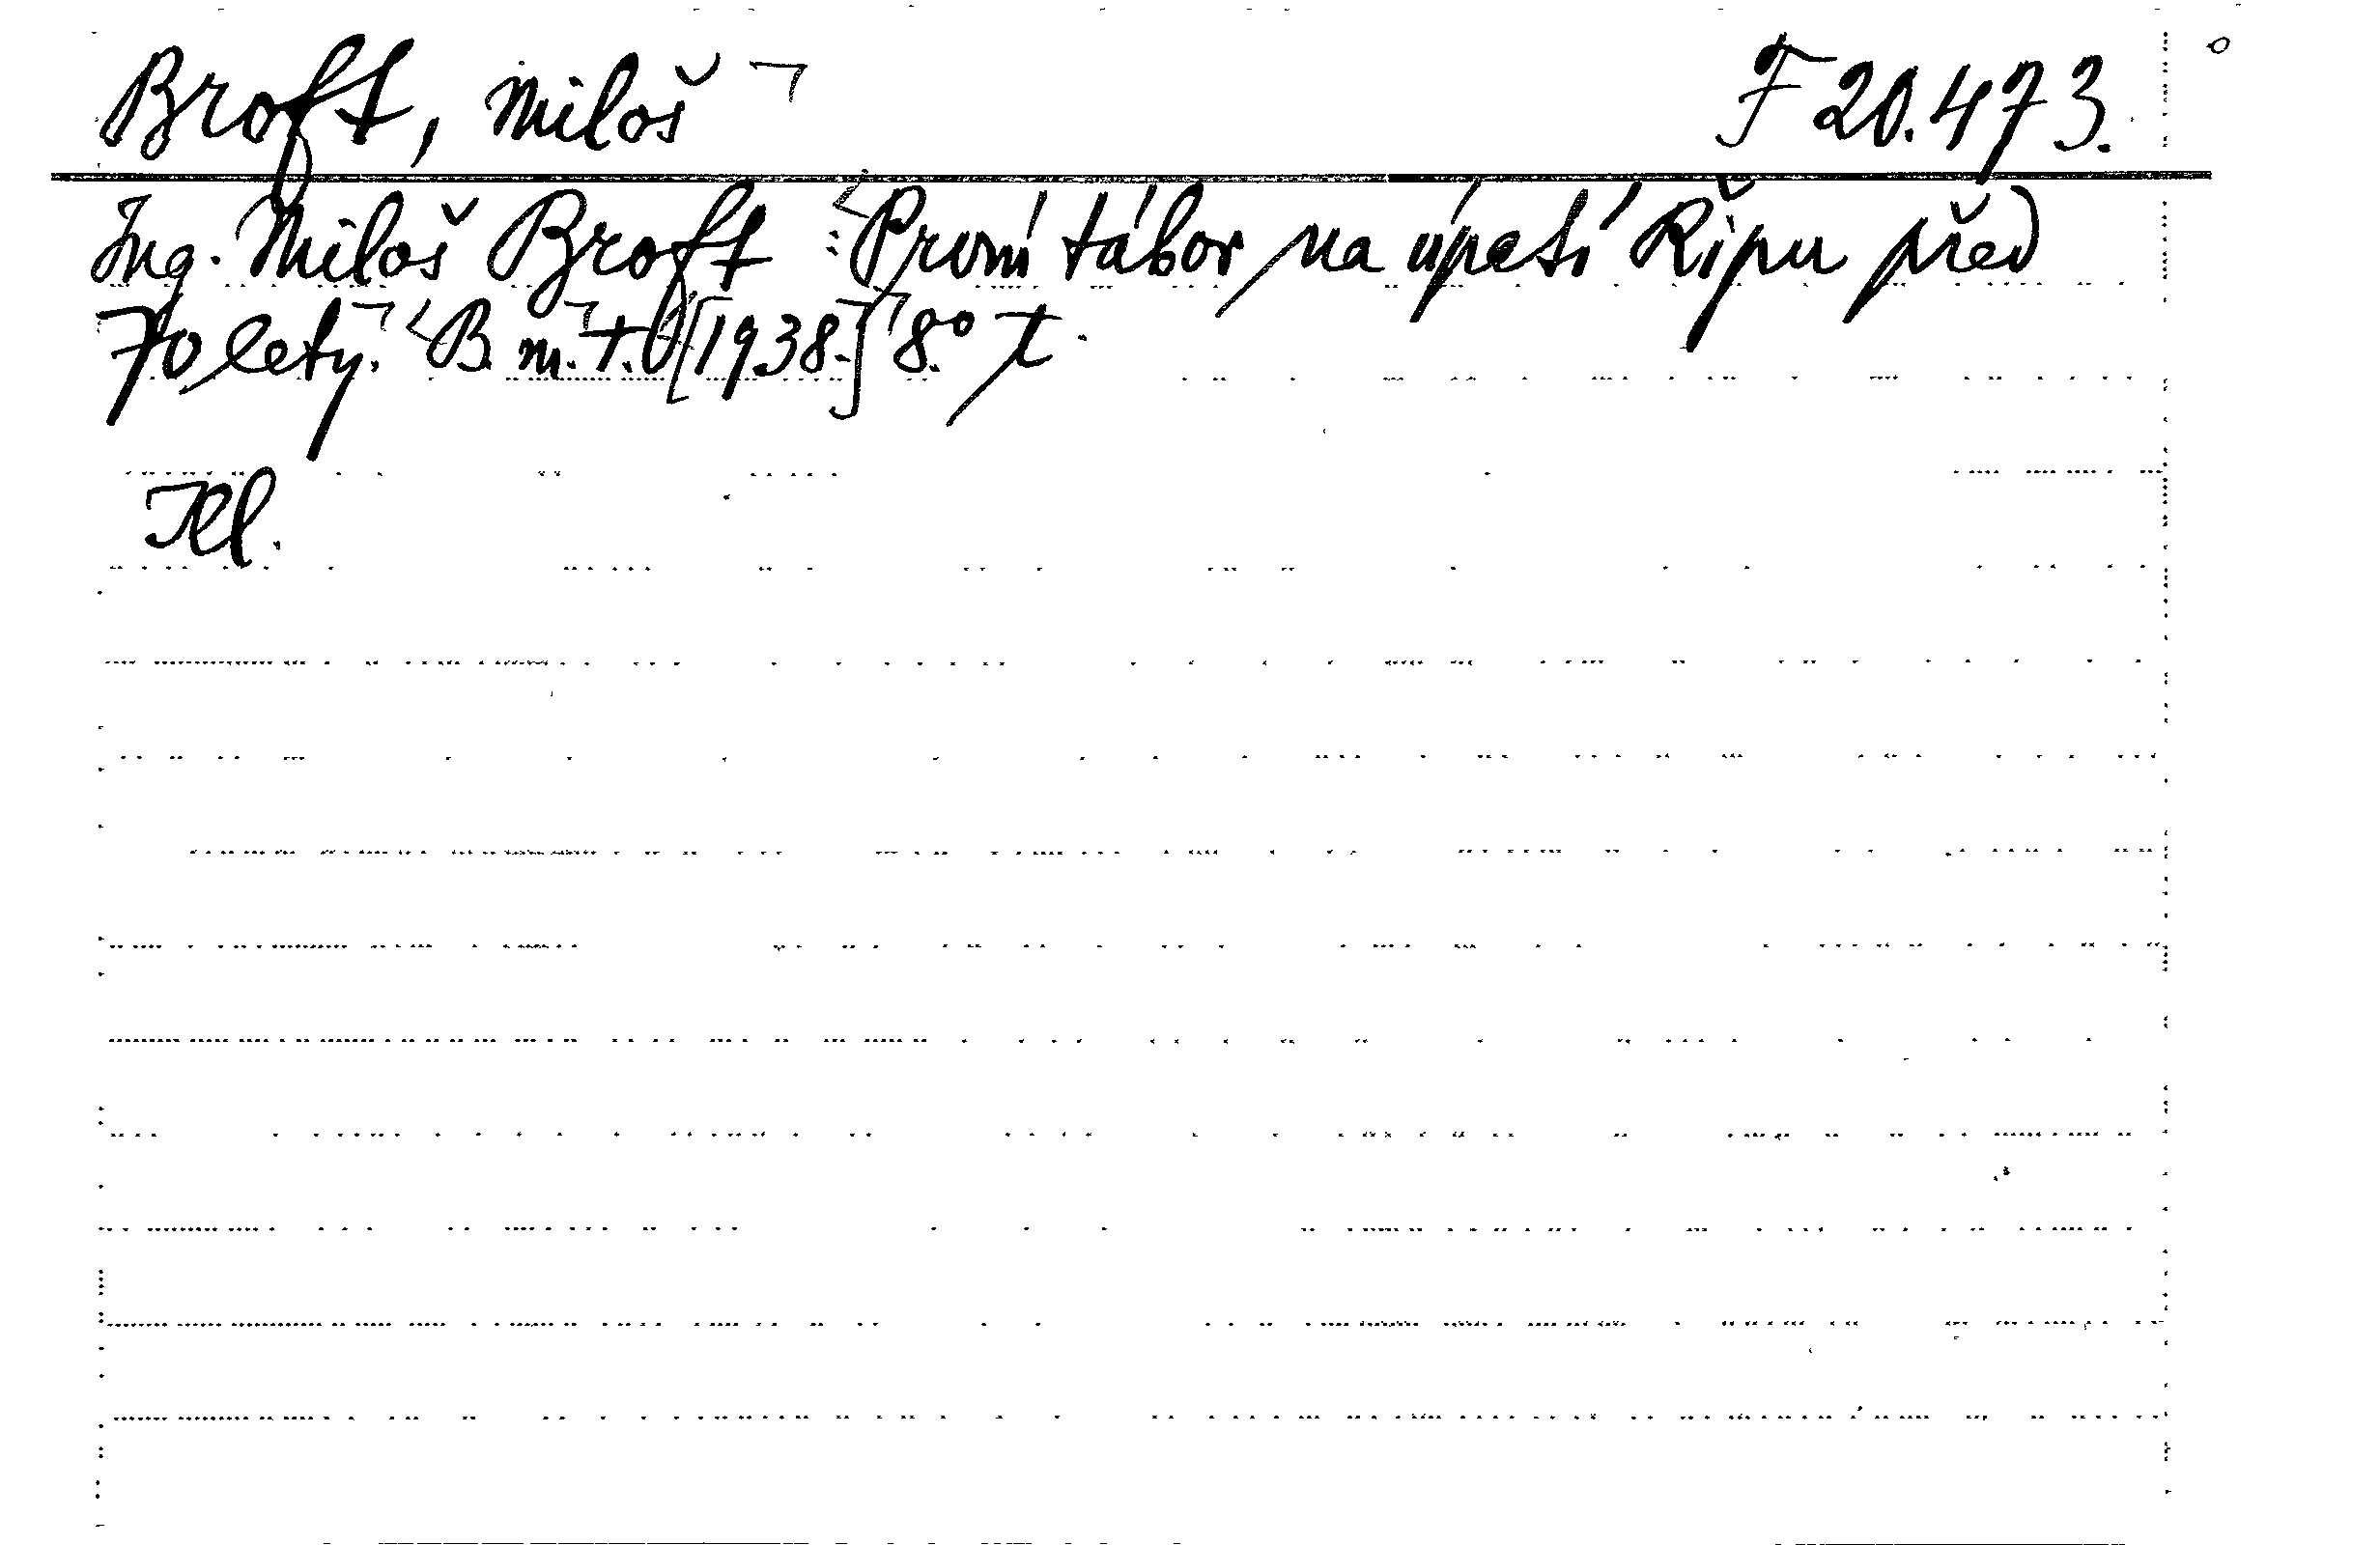 Broft, Miloš F 20.473.
Ing. Miloš Broft: První tábor na úpatí Řípu před
70 lety. B. m. t. [1938.] 8.° t.
Kl.